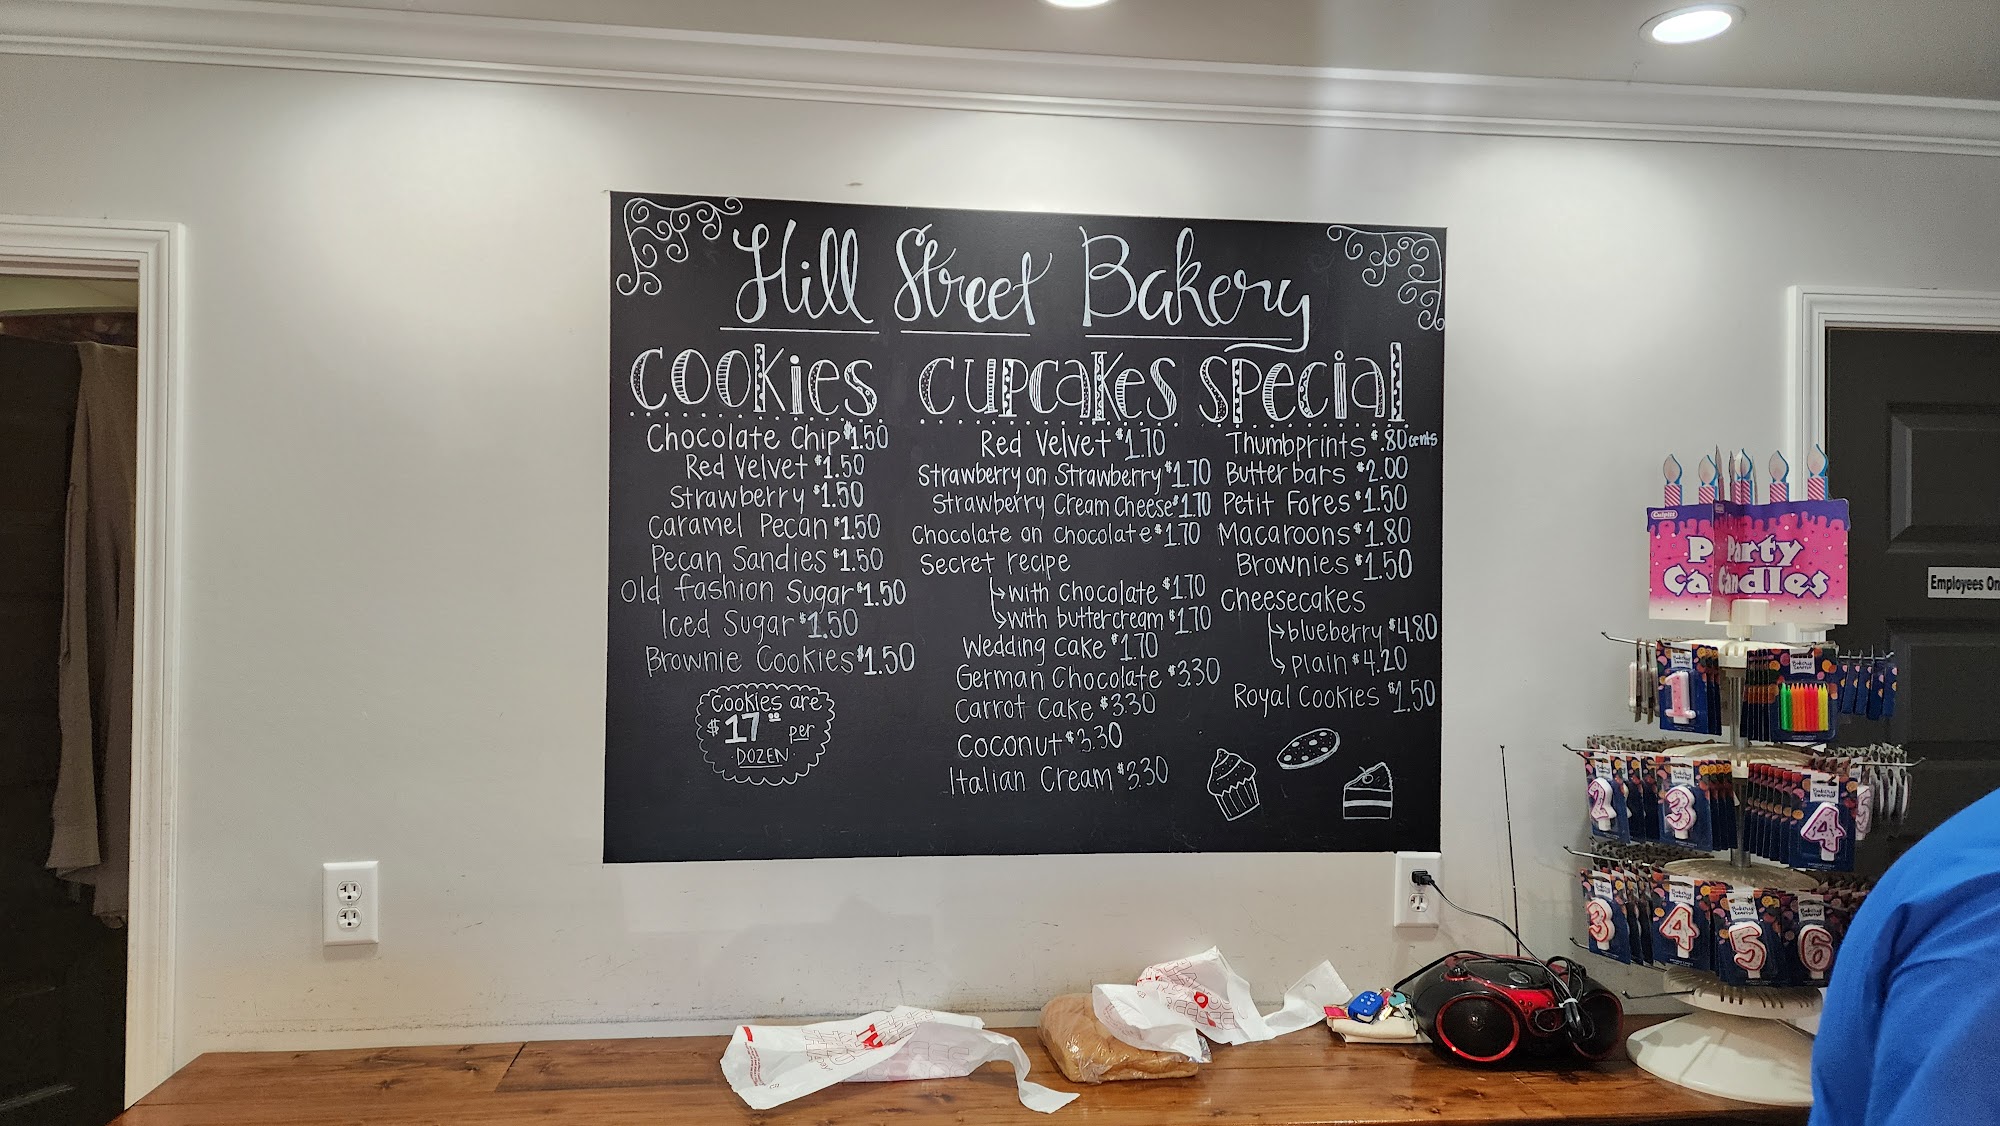 Hill Street Bakery
COOKIES
Chocolate Chip $1.50
Red Velvet $1.50
Strawberry $1.50
Caramel Pecan $1.50
Pecan Sandies $1.50
Old fashion Sugar $1.50
Iced Sugar $1.50
Brownie Cookies $1.50
Cookies are
$17.00 per
DOZEN
CUPCAKES
Red Velvet $1.70
Strawberry on Strawberry $1.70
Strawberry Cream Cheese $1.70
Chocolate on chocolate $1.70
Secret recipe
↳ with Chocolate $1.70
↳ with buttercream $1.70
Wedding Cake $1.70
German Chocolate $3.30
Carrot Cake $3.30
Coconut $3.30
Italian Cream $3.30
SPECIAL
Thumbprints $.80 cents
Butter bars $2.00
Petit Fores $1.50
Macaroons $1.80
Brownies $1.50
Cheesecakes
↳ blueberry $4.80
↳ Plain $4.20
Royal Cookies $1.50
Party
Candles
Employees On
1
2
3
4
3
4
5
6